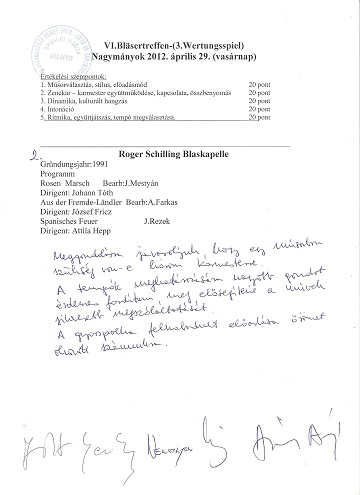 VI.Bläsertreffen-(3.Wertungsspiel)
Nagymányok 2012. április 29. (vasárnap)
Értékelési szempontok:
1. Műsorválasztás, stílus, előadásmód 20 pont
2. Zenekar – karmester együttműködése, kapcsolata, összbenyomás 20 pont
3. Dinamika, kulturált hangzás 20 pont
4. Intonáció 20 pont
5. Ritmika, együttjátszás, tempó megválasztása. 20 pont
2. Roger Schilling Blaskapelle
Gründungsjahr:1991
Programm
Rosen Marsch Bearb:J.Mestyán
Dirigent: Johann Tóth
Aus der Fremde-Ländler Bearb:A.Farkas
Dirigent: József Fricz
Spanisches Feuer J.Rezek
Dirigent: Attila Hepp
Meggondolásra javasoljuk, hogy egy műsorban
szükség van-e három karmesterre.
A tempók meghatározására nagyobb gondot
érdemes fordítani, mely elősegítené a művek
sikeresebb megszólaltatását.
A gyorspolka felszabadult előadása örömet
okozott számunkra.